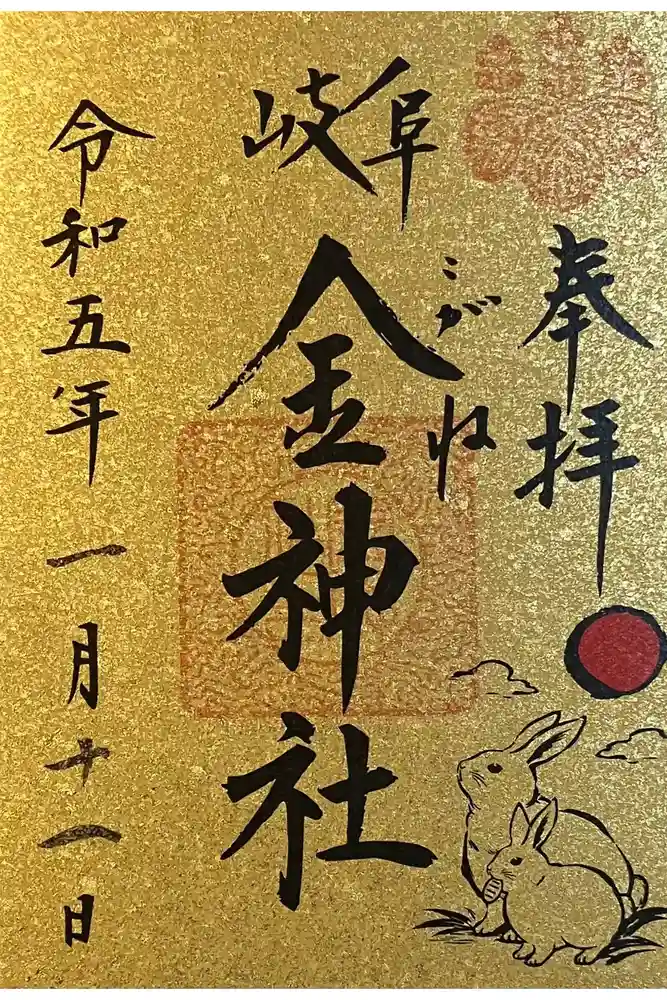 奉拝
岐阜
金神社
こがね
令和五年一月十一日